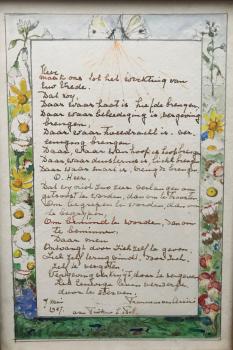 Heer
maak ons tot het werktuig van
Uw Vrede.
Dat wij
Daar waar haat is liefde brengen,
Daar waar beleediging is, vergeving
brengen,
Daar waar tweedracht is, ver-
eeniging brengen
Daar, waar wanhoop is hoop brengen
Daar, waar duisternis is, licht brengen
Daar waar smart is, vreugde brengen
O Heer,
Dat wij niet zoo zeer verlangen om
getroost te worden, dan om te troosten
Om begrepen te worden, dan om
te begrijpen
Om bemind te worden, dan om
te beminnen,
Daar men
Ontvangt door zich zelf te geven
zich zelf terug vindt, door zich
zelf te vergeten
Vergeving verkrijgt door te vergeven
Het eeuwige leven verwerft
door te sterven.
7 Mei
1947.